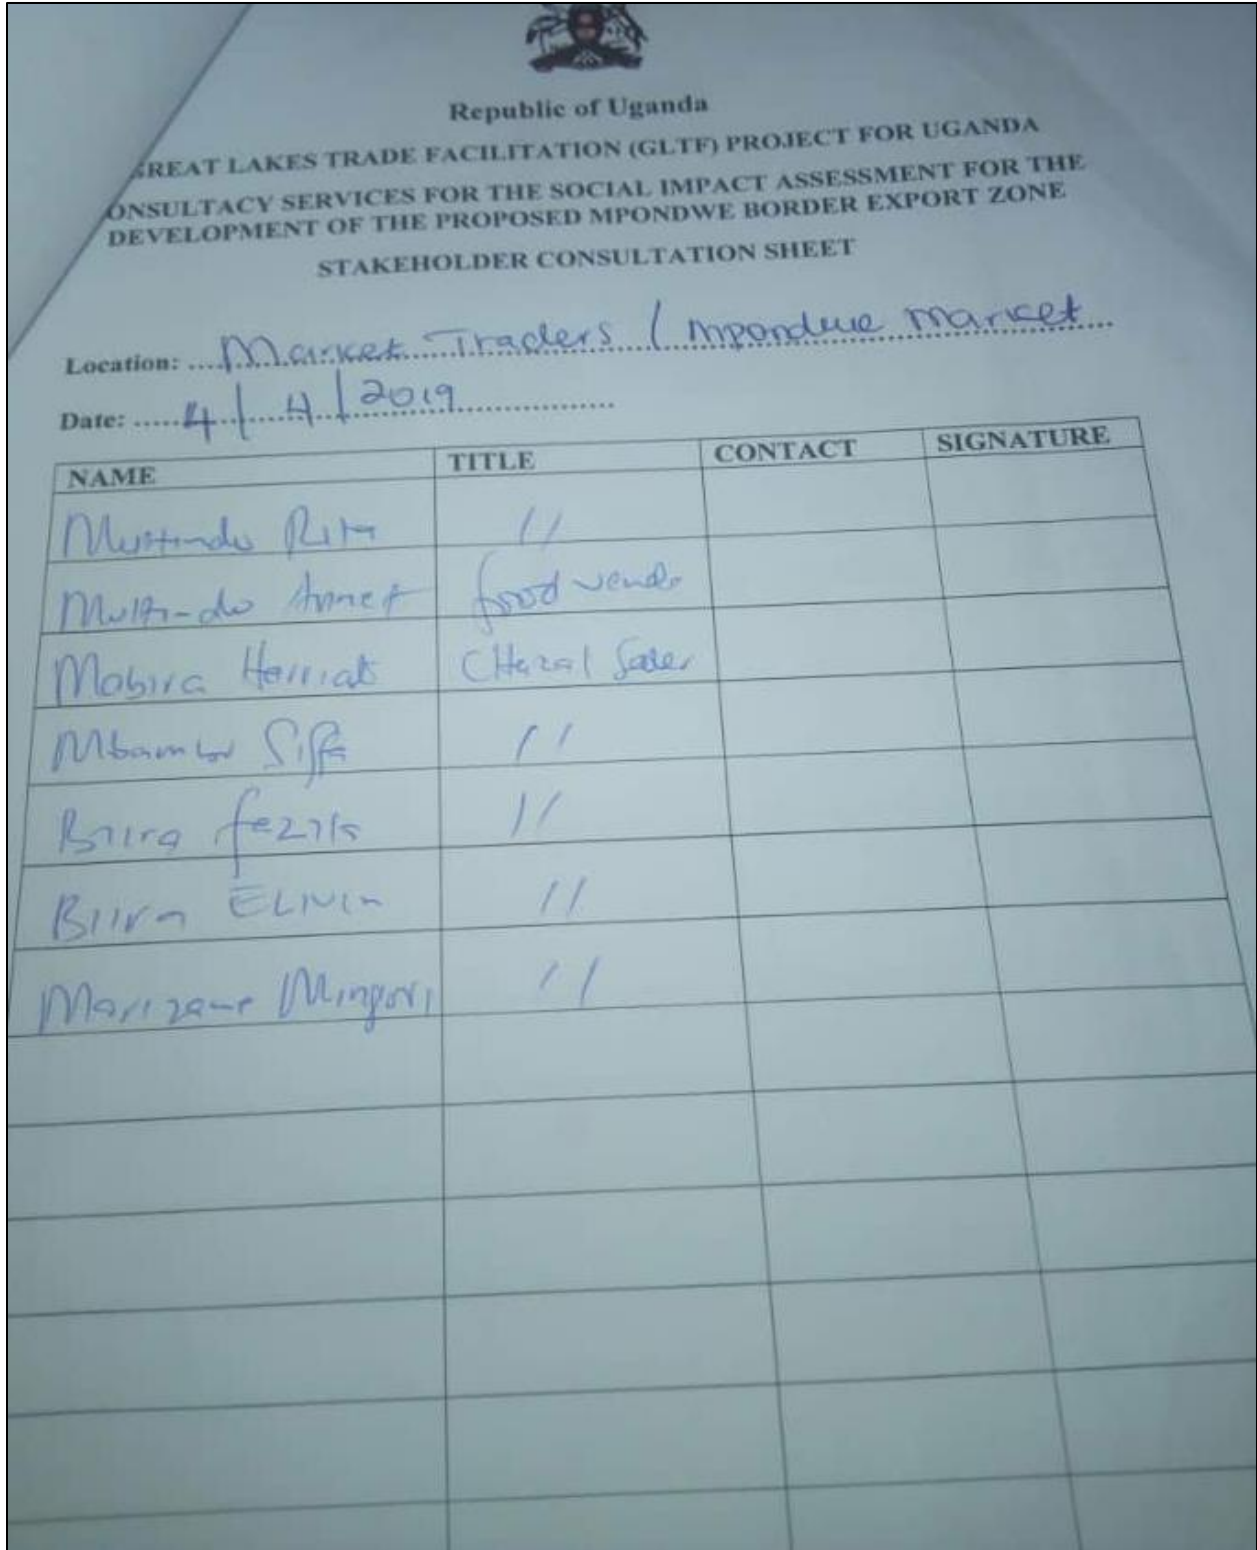 Republic of Uganda
GREAT LAKES TRADE FACILITATION (GLTF) PROJECT FOR UGANDA
ONSULTACY SERVICES FOR THE SOCIAL IMPACT ASSESSMENT FOR THE
DEVELOPMENT OF THE PROPOSED MPONDWE BORDER EXPORT ZONE
STAKEHOLDER CONSULTATION SHEET
Location: Market Traders / Mpondwe Market
Date: 4/4/2019
NAME TITLE CONTACT SIGNATURE
Rita //
Annet food
Mobira Harriat
//
Biira //
Biira //
//